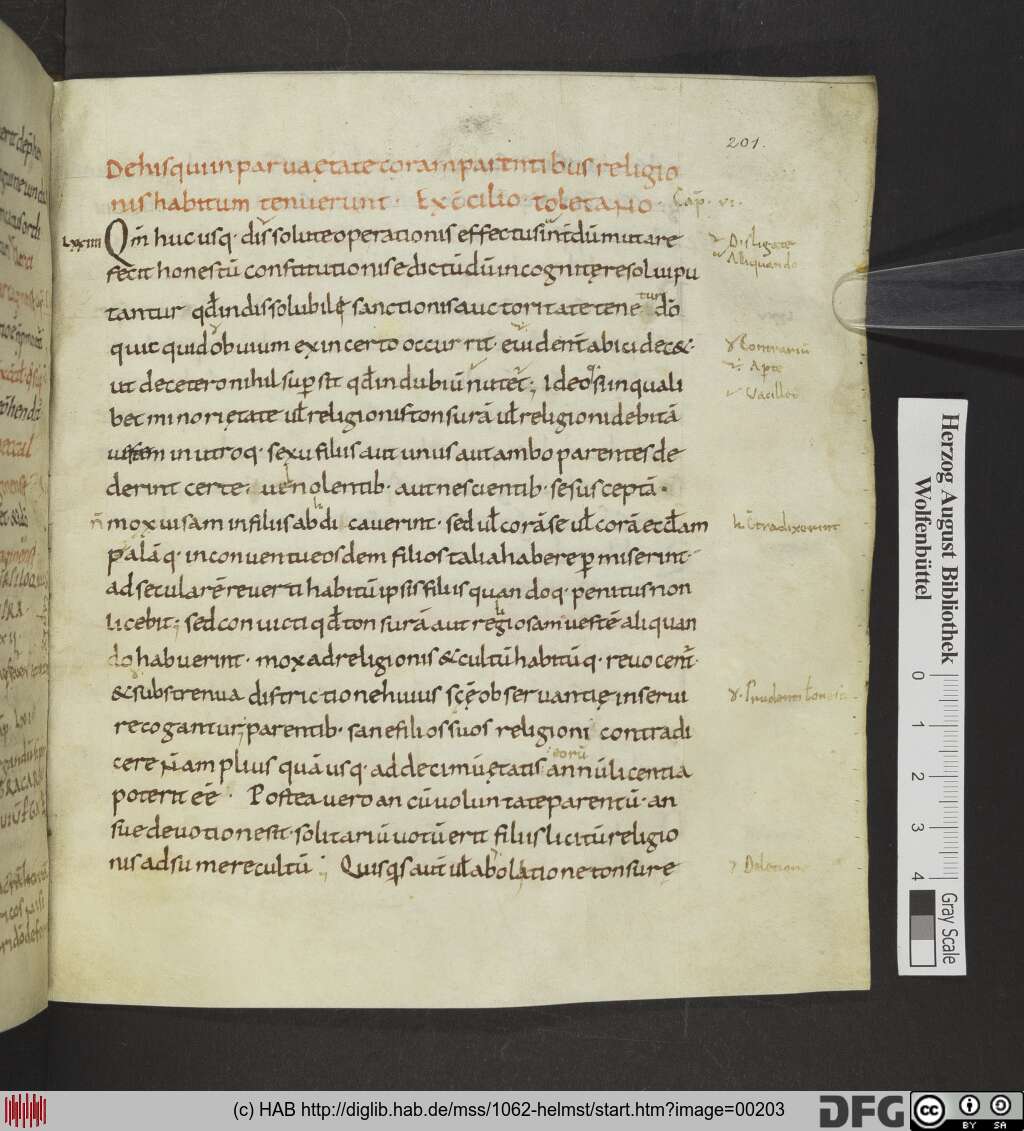 201.
De his qui in parva ętate coram parentibus religio
nis habitum tenuerunt · Ex c̄cilio toletano · Cap̄. vi.
Lxxiiii Qm̄ huc usq· dissolute operationis effectus int̄dū mutare
Disligate
Aliquando
fecit honestū constitutionis edictū dū incognitę resolvi pu
tantur qđ indissolubile sanctionis auctoritate tenetur dō
quicquid obvium ex incerto occurrit· evident̄ abici decet·
Contrariū
Apte
ut de cetero nihil sup̄sit qđ in dubiū nutet̄; Ideoq· si in quali
Vacillet
bet minori ętate vł religionis tonsurā vł religioni debitā
vestem in utroq· sexu filiis aut unus aut ambo parentes de
derint certe· vel nolentib· aut nescientib· se susceptā·
mox visam in filiis abdi caverint· sed vł corā se vł corā ecclam
c̄tradixerint
palāq· in conventu eosdem filios talia habere p̱miserint·
ad secularē reverti habitū ipsis filiis quandoq· penitus non
licebit; sed convicti qđ tonsurā aut religiosam vestē aliquan
do habuerint· mox ad religionis & cultū habitūq· revocent̄·
& sub strenua districtione huius scę observantię inservi
re cogantur; parentib· sane filios suos religioni contradi
eorū
cere n̄ amplius quā usq· ad decimū ętatis annū licentia
poterit eē· Postea vero an cū voluntate parentū· an
suę devotionis sit· solitariū votū erit filiis licitū religio
nis adsumere cultū; Quisq̄s aut̄ vł abolatione tonsurę
Herzog August Bibliothek
Wolfenbüttel
0 1 2 3 4
Gray Scale
(c) HAB http://diglib.hab.de/mss/1062-helmst/start.htm?image=00203
DFG
cc BY SA